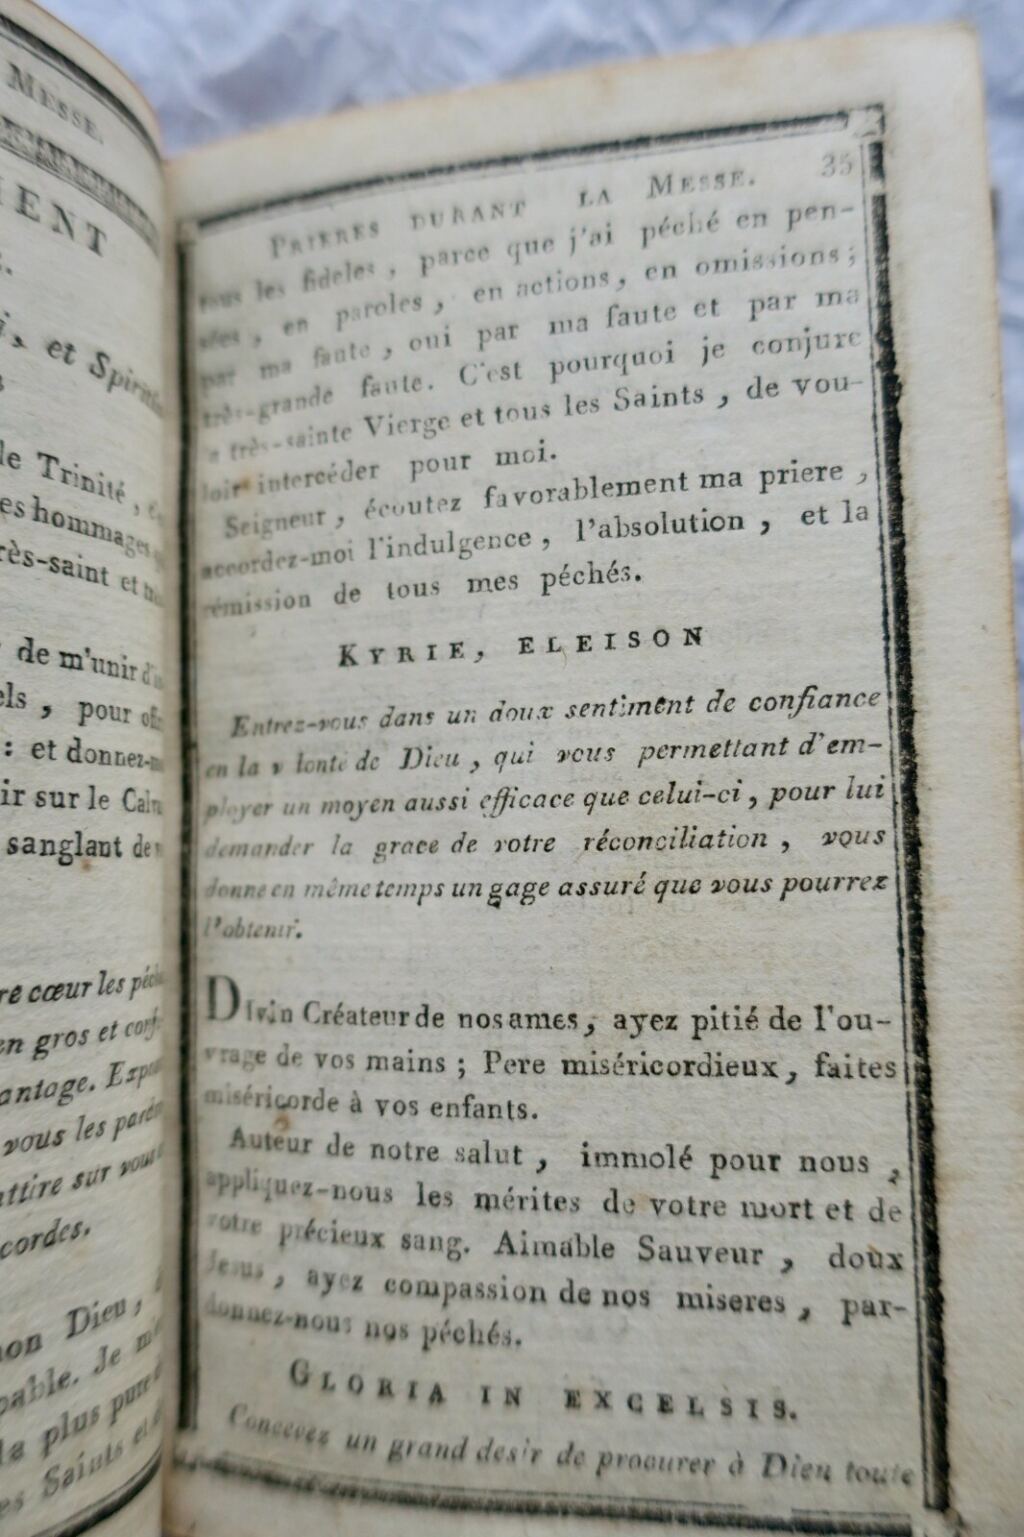 MESSE.
MENT
et Spiritûs
de Trinité,
es hommages
rès-saint et
de m'unir
els, pour
: et donnez-
ir sur le
sanglant de
re cœur les
en gros et
antage.
vous les
attire sur vous
cordes.
mon Dieu,
pable. Je
la plus pure
es Saints et
PRIERES DURANT LA MESSE. 35
tous les fideles, parce que j'ai péché en pen-
sées, en paroles, en actions, en omissions;
par ma faute, oui par ma faute et par ma
très-grande faute. C'est pourquoi je conjure
a très-sainte Vierge et tous les Saints, de vou-
loir intercéder pour moi.
Seigneur, écoutez favorablement ma priere,
accordez-moi l'indulgence, l'absolution, et la
rémission de tous mes péchés.
KYRIE, ELEISON
Entrez-vous dans un doux sentiment de confiance
en la v lonté de Dieu, qui vous permettant d'em-
ployer un moyen aussi efficace que celui-ci, pour lui
demander la grace de votre réconciliation, vous
donne en même temps un gage assuré que vous pourrez
l'obtenir.
Divin Créateur de nos ames, ayez pitié de l'ou-
vrage de vos mains; Pere miséricordieux, faites
miséricorde à vos enfants.
Auteur de notre salut, immolé pour nous,
appliquez-nous les mérites de votre mort et de
votre précieux sang. Aimable Sauveur, doux
Jesus, ayez compassion de nos miseres, par-
donnez-nous nos péchés.
GLORIA IN EXCELSIS.
Concevez un grand desir de procurer à Dieu toute